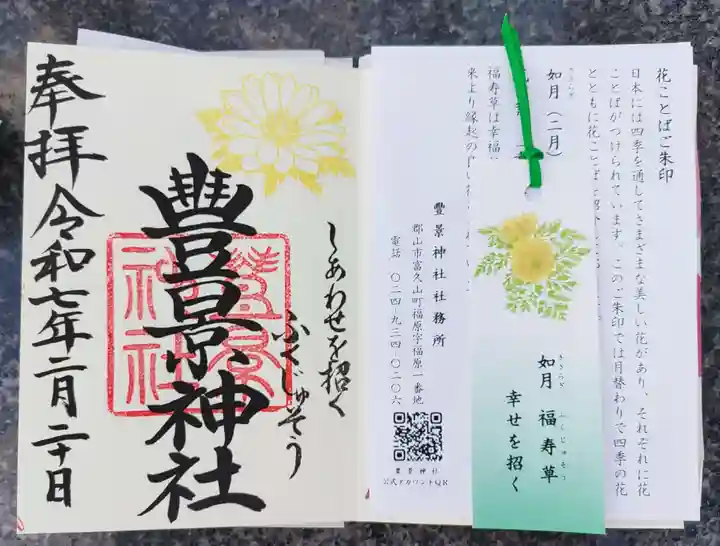 奉拝
令和七年二月二十日
豊景神社
豊景
神社
しあわせを招く
ふくじゅそう
花ことばご朱印
日本には四季を通してさまざまな美しい花があり、それぞれに花
ことばがつけられています。このご朱印では月替わりで四季の花
とともに花ことばを紹介
きさらぎ
如月(二月)
福寿草は幸福
来より縁起の
豊景神社社務所
郡山市富久山町福原字福原一番地
電話 〇二四-九三四-〇二〇六
豊景神社
公式アカウントQR
きさらぎ ふくじゅそう
如月 福寿草
幸せを招く